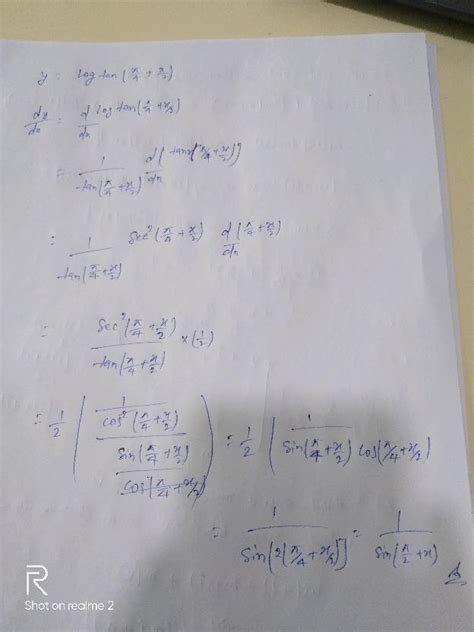 y = log tan (π/4 + x/2)
dy/dx = d/dx log tan (π/4 + x/2)
= 1/tan(π/4 + x/2) d/dx (tan (π/4 + x/2))
= 1/tan(π/4 + x/2) sec²(π/4 + x/2) d/dx (π/4 + x/2)
= sec²(π/4 + x/2)/tan(π/4 + x/2) × (1/2)
= 1/2 (1/cos²(π/4 + x/2) / sin(π/4 + x/2)/cos(π/4 + x/2)) = 1/2 (1/sin(π/4 + x/2) cos(π/4 + x/2))
= 1/sin[2(π/4 + x/2)] = 1/sin(π/2 + x)
R
Shot on realme 2